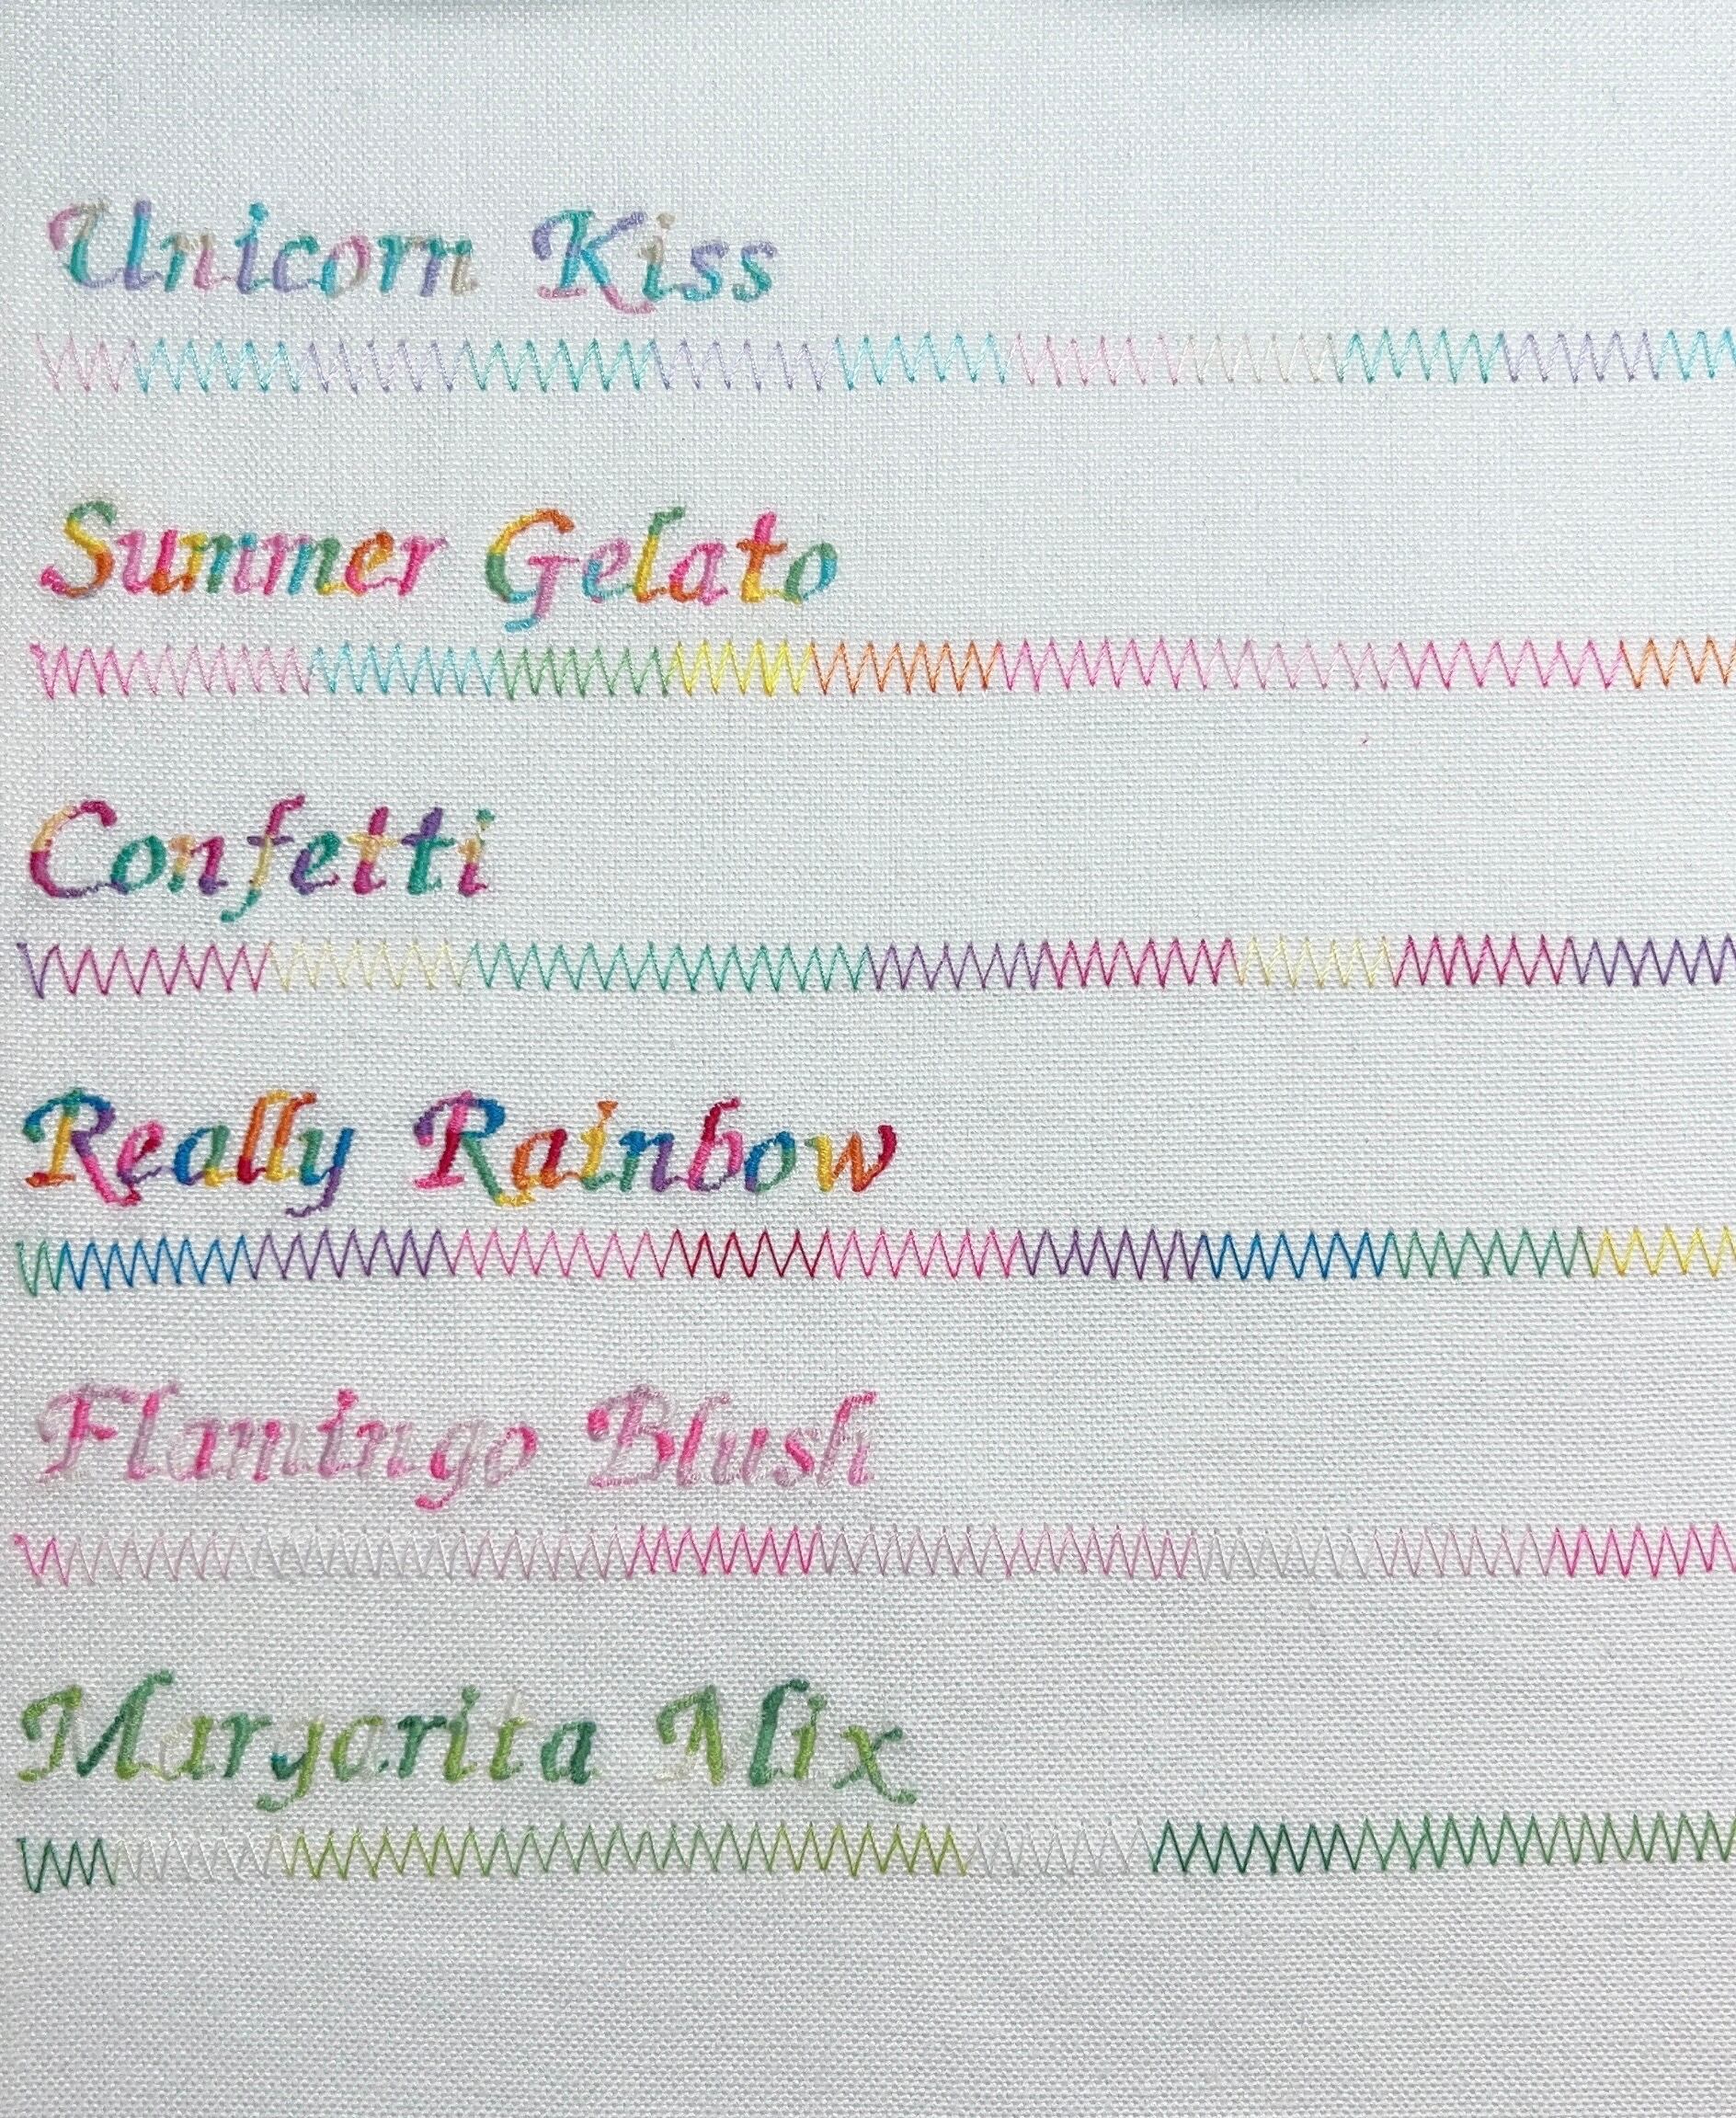 Unicorn Kiss
Summer Gelato
Confetti
Really Rainbow
Flamingo Blush
Margarita Mix